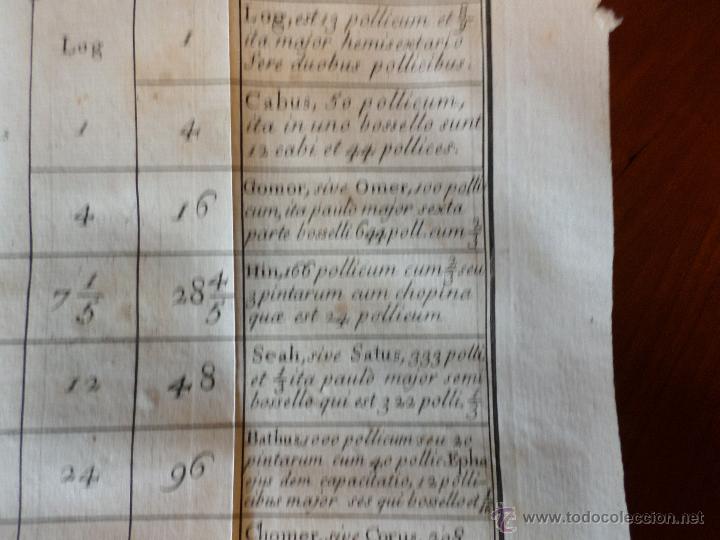 Log 1 Log, est 13 pollicum et
ita major hemisextario
fere duobus pollicibus.
1 4 Cabus, 50 pollicum,
ita in uno bossello sunt
12 cabi et 44 pollices.
4 16 Gomor, sive Omer, 100 polli
cum, ita paulo major sexta
parte bosselli 644 poll. cum 2/3
7 1/5 28 4/5 Hin, 166 pollicum cum 2/3 seu
3 pintarum cum chopina
quæ est 24 pollicum
12 48 Seah, sive Satus, 333 polli
et 1/3 ita paulò major semi
bossello qui est 322 polli,
24 96 Bathus, 1000 pollicum seu 20
pintarum cum 40 pollic. Epha
ejus dem capacitatio, 12 polli-
cibus major ses qui bossello et
Chomer, sive Corus, 208
© todocoleccion.net
www.todocoleccion.com